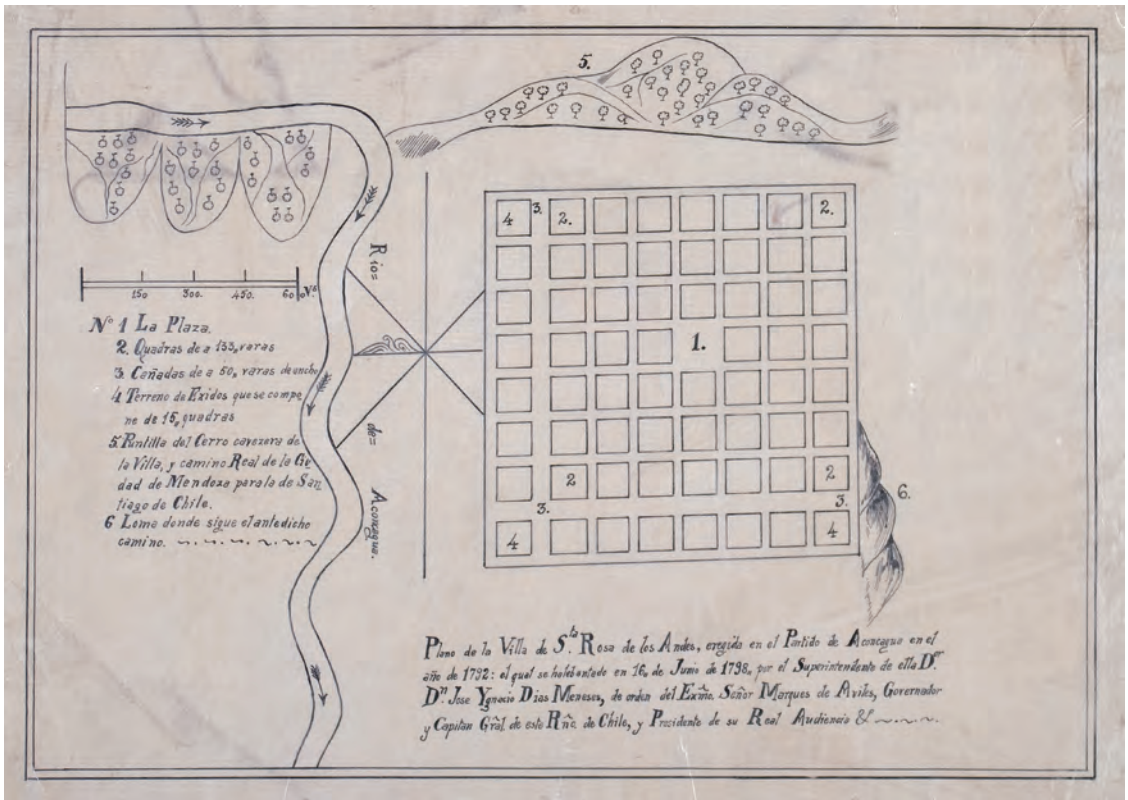 5.
4
3.
2.
2.
Rio=
150 300. 450. 600 Vs.
Nº 1 La Plaza.
2. Quadras de a 153,, varas
3. Cañadas de a 50,, varas de ancho
4 Terreno de Exidos que se compo
ne de 15,, quadras
5. Puntilla del Cerro cavezera de
la Villa, y camino Real de la Ciu
dad de Mendoza para la de San
tiago de Chile.
6 Loma donde sigue el antedicho
camino.
1.
de=
Aconcagua.
2
2
3.
3.
6.
4
4
Plano de la Villa de S.ta Rosa de los Andes, eregida en el Partido de Aconcagua en el
año de 1792: el qual se ha lebantado en 16,, de Junio de 1798,, por el Superintendente de ella D.n
D.n Jose Ygnacio Dias Meneses, de orden del Exmo. Señor Marques de Aviles, Governador
y Capitan Gral. de este Rño. de Chile, y Presidente de su Real Audiencia &